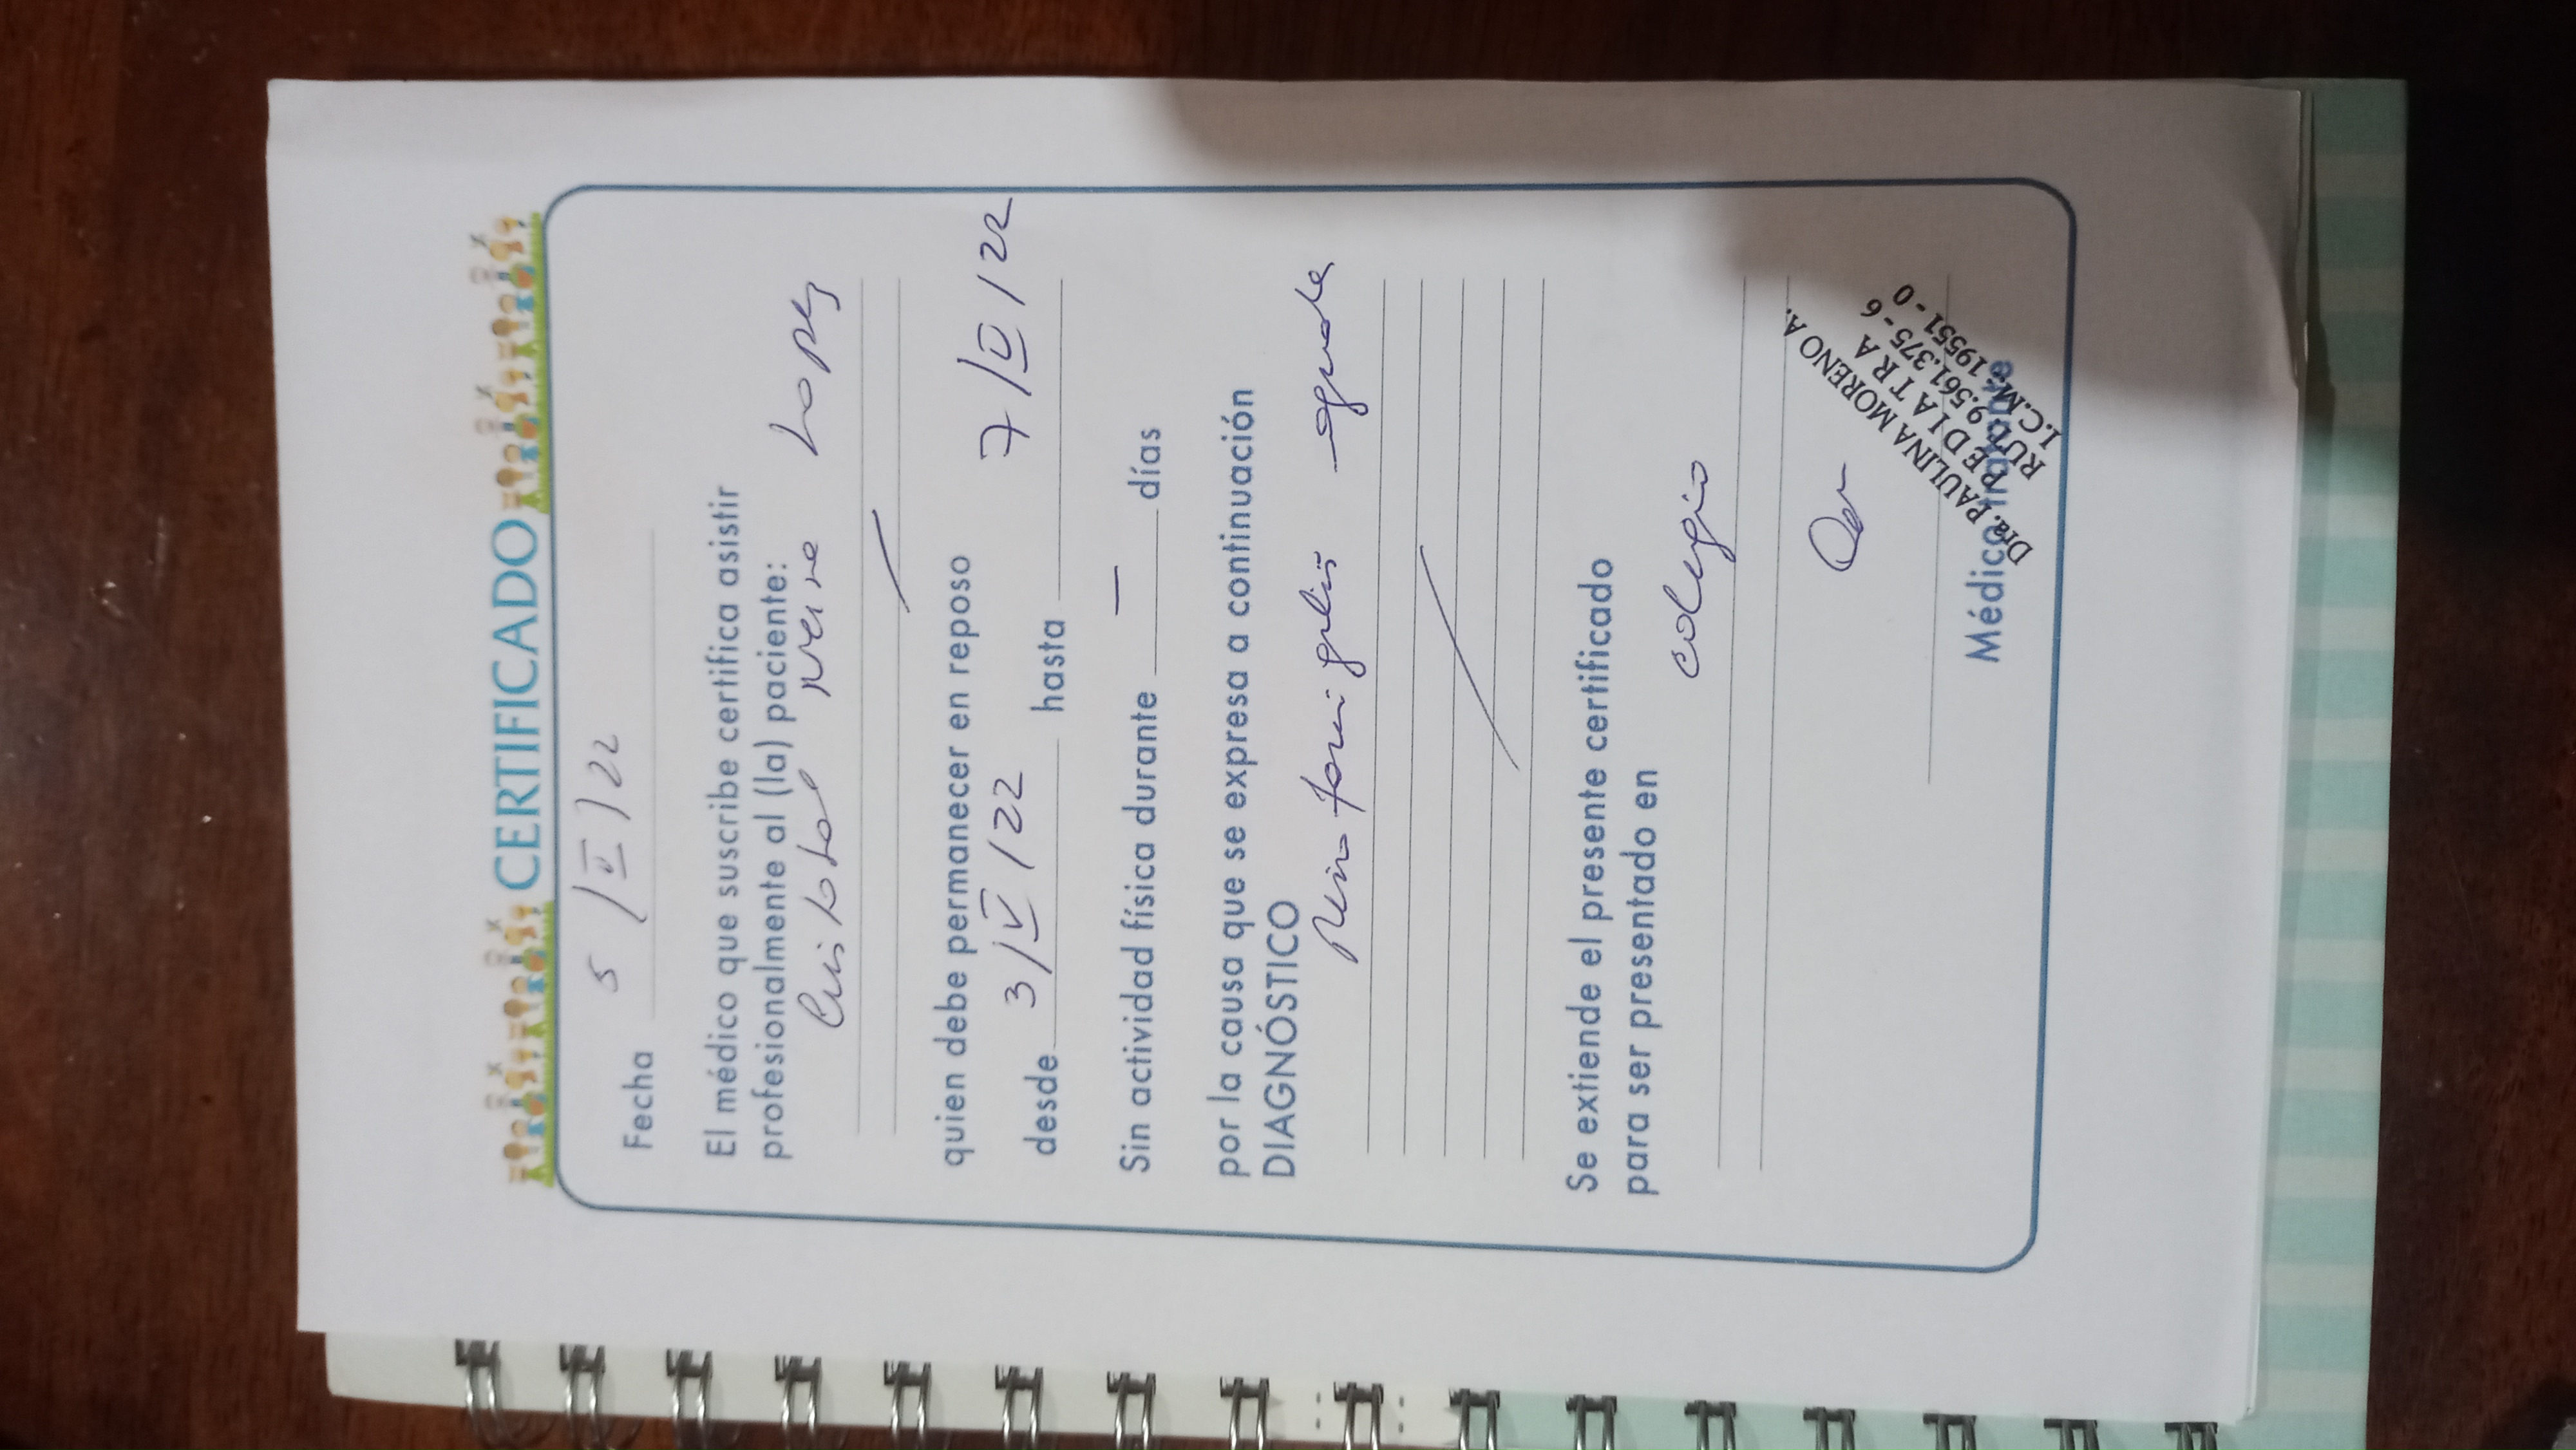 CERTIFICADO
Fecha 5/V/22
El médico que suscribe certifica asistir
profesionalmente al (la) paciente:
Cristobal Neira Lopez
quien debe permanecer en reposo
desde 3/V/22 hasta 7/V/22
Sin actividad física durante — días
por la causa que se expresa a continuación
DIAGNÓSTICO
Rinofaringitis aguda
Se extiende el presente certificado
para ser presentado en
colegio
Dra. PAULINA MORENO A.
PEDIATRA
RUT. 9.561.375-6
I.C.M. 19551-0
Médico tratante